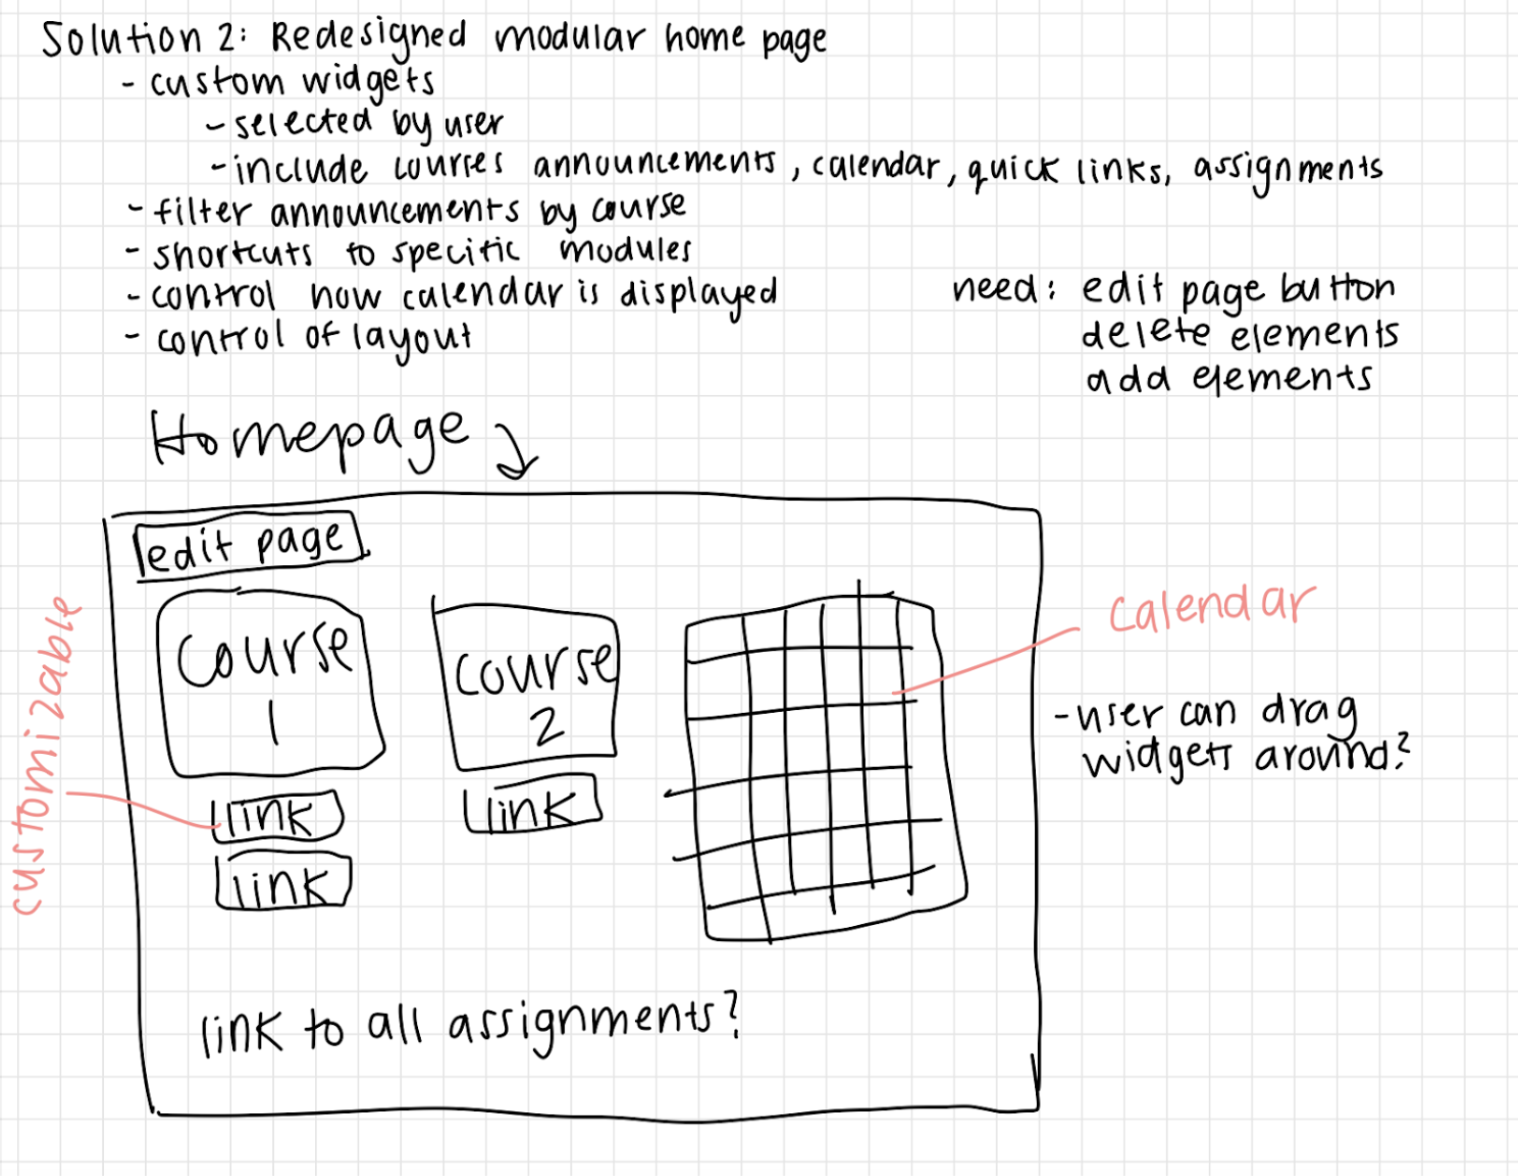 Solution 2: Redesigned modular home page
- custom widgets
- selected by user
- include courses announcements, calendar, quick links, assignments
- filter announcements by course
- shortcuts to specific modules
- control how calendar is displayed
- control of layout
need: edit page button
delete elements
add elements
Homepage
edit page
Course
1
course
2
link
link
link
customizable
Calendar
- user can drag
widgets around?
link to all assignments?